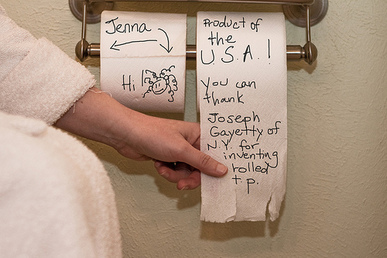 Jenna
Hi!
Product of
the
U.S.A.!
You can
thank
Joseph
Gayetty of
N.Y. for
inventing
rolled
t.p.